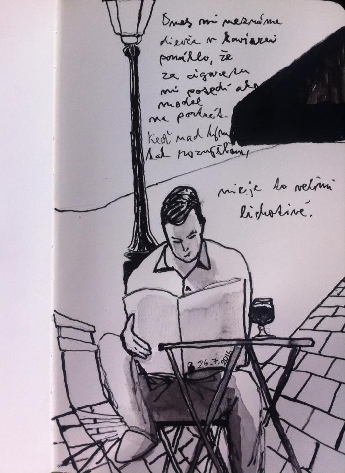 Dnes mi neznáme
dievča v kaviarni
ponúklo, že
za cigaretu
mi posedí ako
model
na portrét.
Keď nad tým
tak rozmýšľam,
nie je to veľmi
lichotivé.